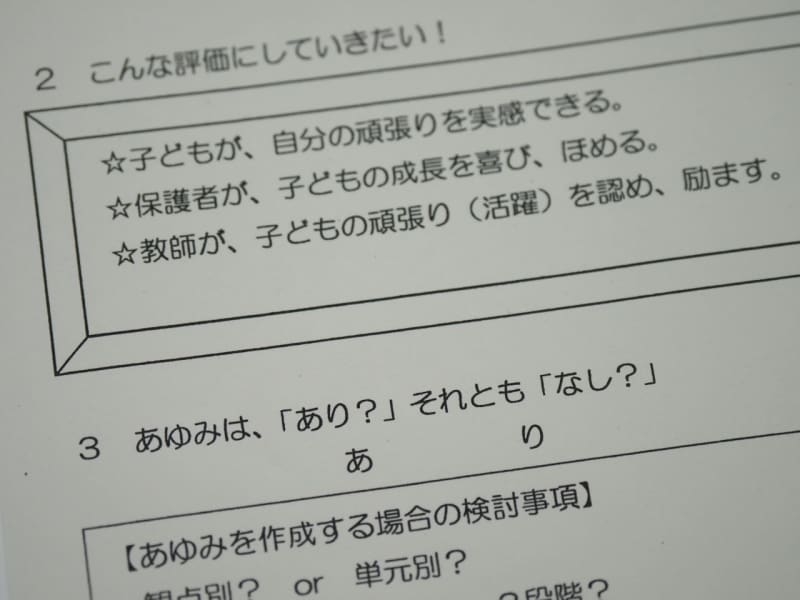 ２　こんな評価にしていきたい！
☆子どもが、自分の頑張りを実感できる。
☆保護者が、子どもの成長を喜び、ほめる。
☆教師が、子どもの頑張り（活躍）を認め、励ます。
３　あゆみは、「あり？」それとも「なし？」
あ　り
【あゆみを作成する場合の検討事項】
観点別？　or　単元別？
段階？